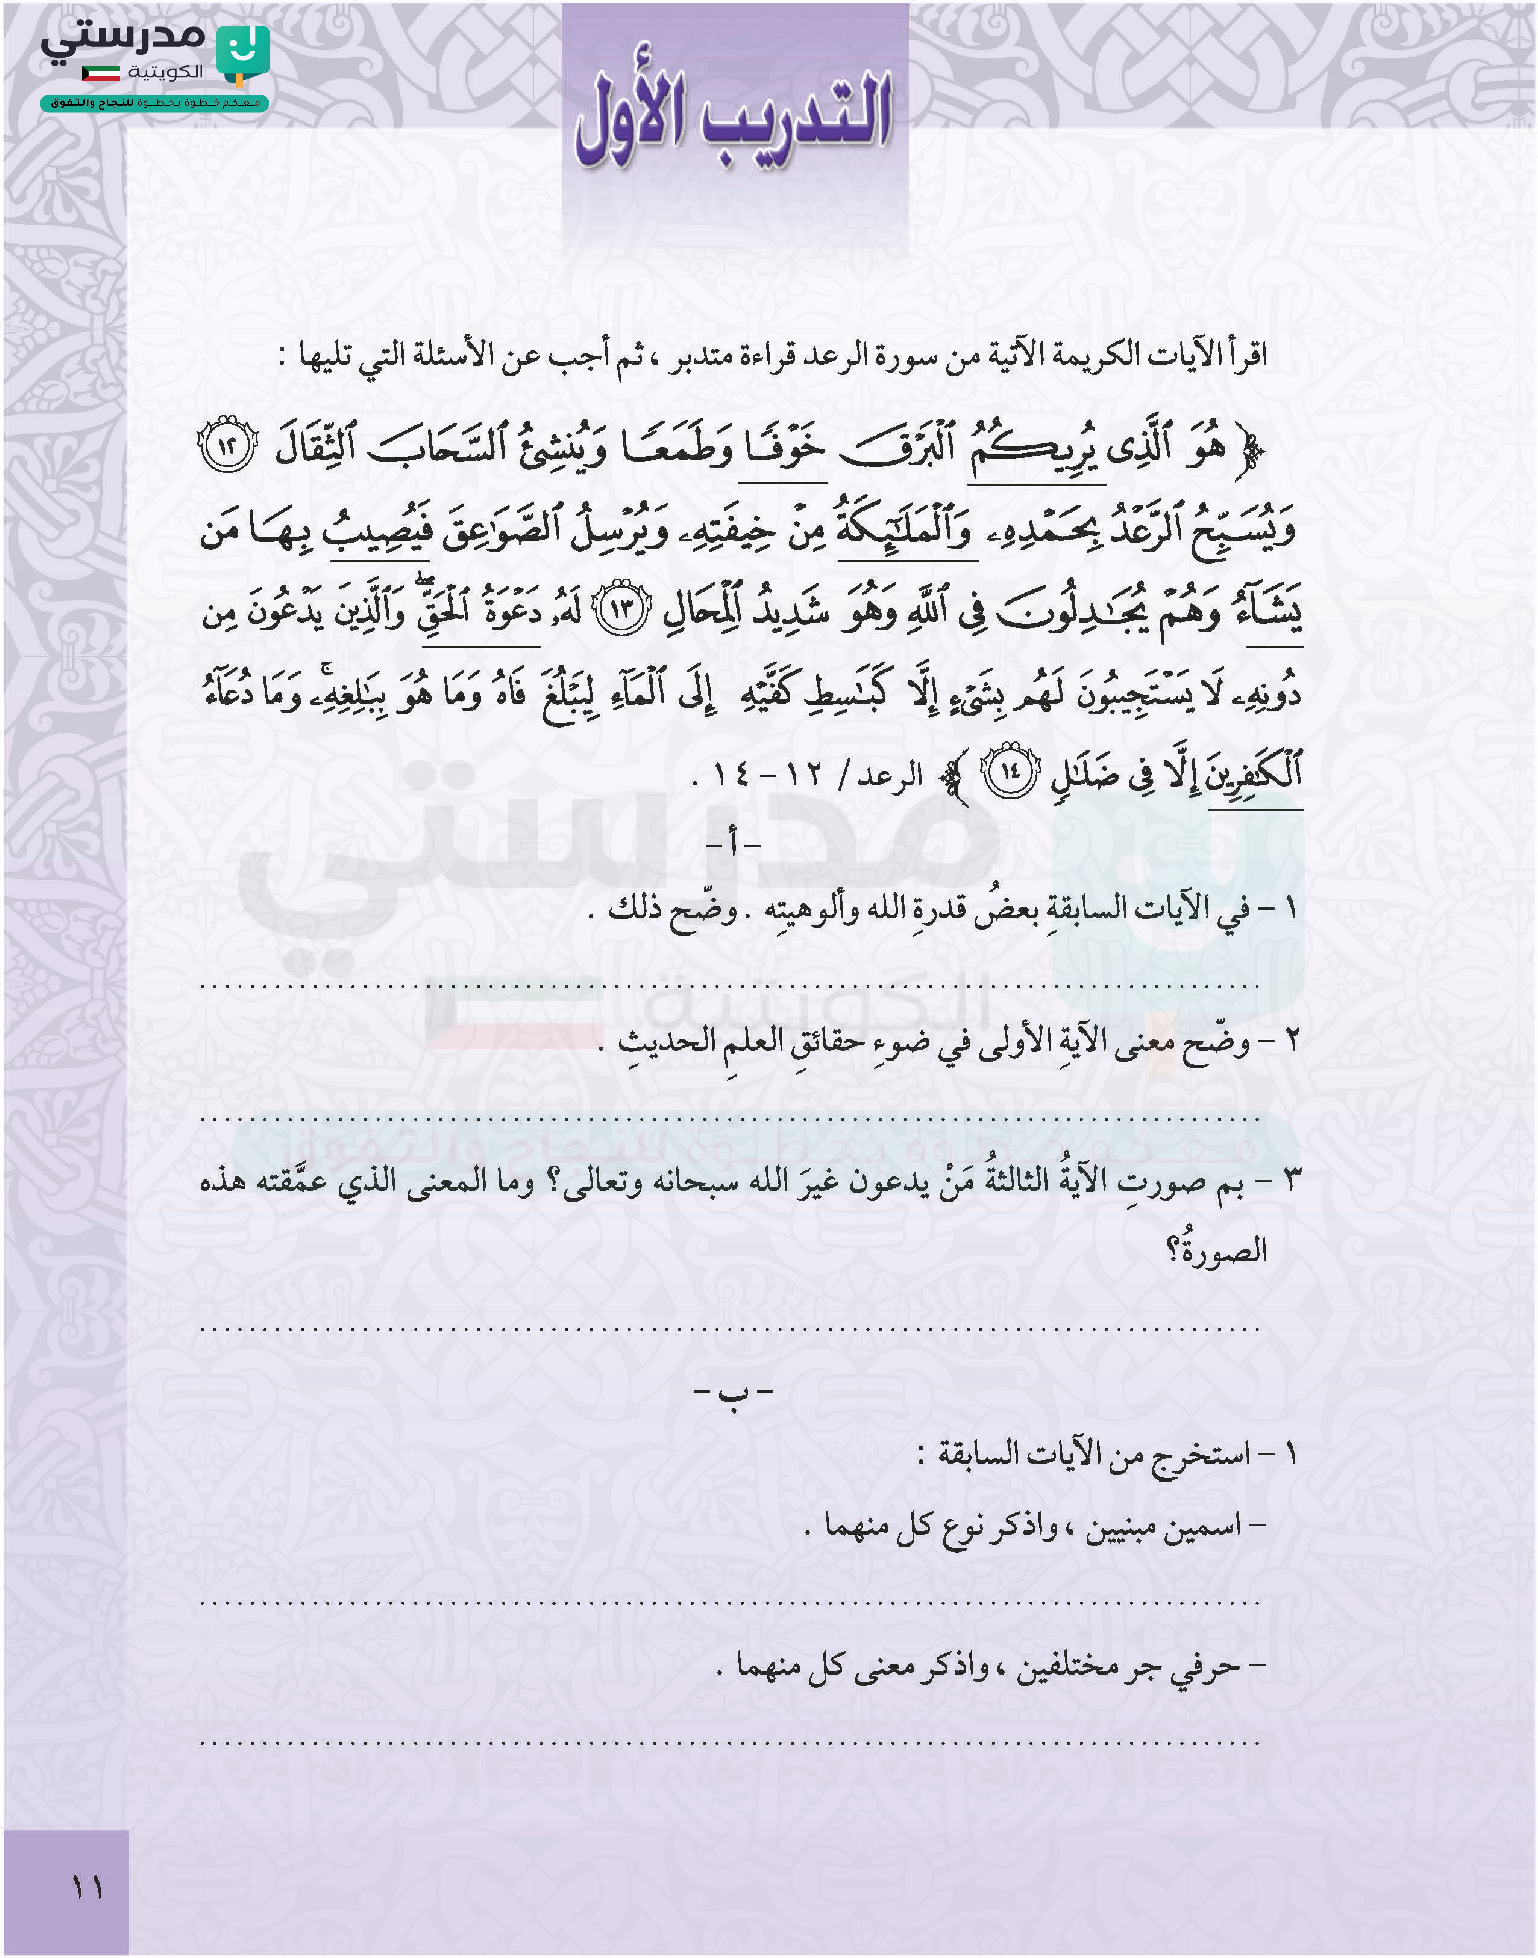 مدرستي
الكويتية
معكم خطوة بخطوة للنجاح والتفوق
التدريب الأول
اقرأ الآيات الكريمة الآتية من سورة الرعد قراءة متدبر ، ثم أجب عن الأسئلة التي تليها :
﴿ هُوَ ٱلَّذِى يُرِيكُمُ ٱلْبَرْقَ خَوْفًا وَطَمَعًا وَيُنشِئُ ٱلسَّحَابَ ٱلثِّقَالَ ١٢
وَيُسَبِّحُ ٱلرَّعْدُ بِحَمْدِهِۦ وَٱلْمَلَٰٓئِكَةُ مِنْ خِيفَتِهِۦ وَيُرْسِلُ ٱلصَّوَٰعِقَ فَيُصِيبُ بِهَا مَن
يَشَآءُ وَهُمْ يُجَٰدِلُونَ فِى ٱللَّهِ وَهُوَ شَدِيدُ ٱلْمِحَالِ ١٣ لَهُۥ دَعْوَةُ ٱلْحَقِّ ۖ وَٱلَّذِينَ يَدْعُونَ مِن
دُونِهِۦ لَا يَسْتَجِيبُونَ لَهُم بِشَىْءٍ إِلَّا كَبَٰسِطِ كَفَّيْهِ إِلَى ٱلْمَآءِ لِيَبْلُغَ فَاهُ وَمَا هُوَ بِبَٰلِغِهِۦ ۚ وَمَا دُعَآءُ
ٱلْكَٰفِرِينَ إِلَّا فِى ضَلَٰلٍ ١٤ ﴾ الرعد / ١٢ – ١٤ .
– أ –
١ – في الآيات السابقةِ بعضُ قدرةِ الله وألوهيتِه . وضّح ذلك .
٢ – وضّح معنى الآيةِ الأولى في ضوءِ حقائقِ العلمِ الحديثِ .
٣ – بم صورتِ الآيةُ الثالثةُ مَنْ يدعون غيرَ الله سبحانه وتعالى؟ وما المعنى الذي عمَّقته هذه
الصورةُ؟
– ب –
١ – استخرج من الآيات السابقة :
– اسمين مبنيين ، واذكر نوع كل منهما .
– حرفي جر مختلفين ، واذكر معنى كل منهما .
١١